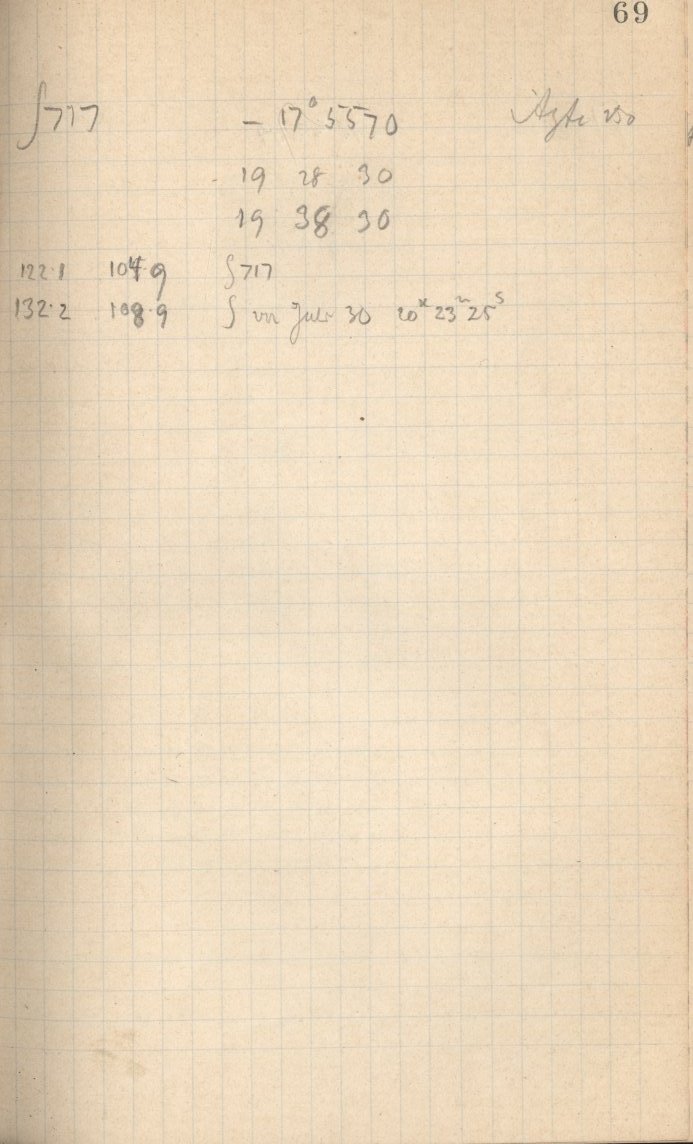 69
∫717 - 17° 5570
19 28 30
19 38 30
122.1 104.9 ∫717
132.2 108.9 ∫ von 30 20 23 25ˢ